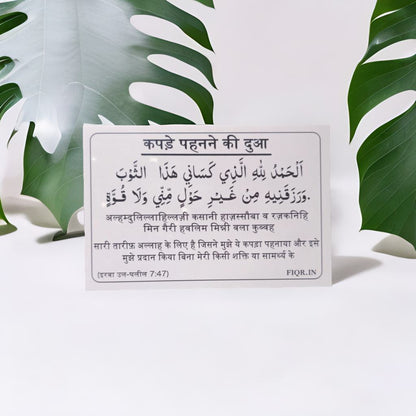 कपड़े पहनने की दुआ
اَلْحَمْدُ لِلّٰهِ الَّذِي كَسَانِي هَذَا الثَّوْبَ
وَرَزَقَنِيهِ مِنْ غَيْرِ حَوْلٍ مِّنِّي وَلَا قُوَّةٍ.
अल्हम्दुलिल्लाहिल्लज़ी कसानी हाज़स्सौबा व रज़कनिहि
मिन गैरी हवलिम मिन्नी वला कुव्वह
सारी तारीफ़ अल्लाह के लिए है जिसने मुझे ये कपड़ा पहनाया और इसे
मुझे प्रदान किया बिना मेरी किसी शक्ति या सामर्थ्य के
(इरवा उल-घलील 7:47)
FIQR.IN